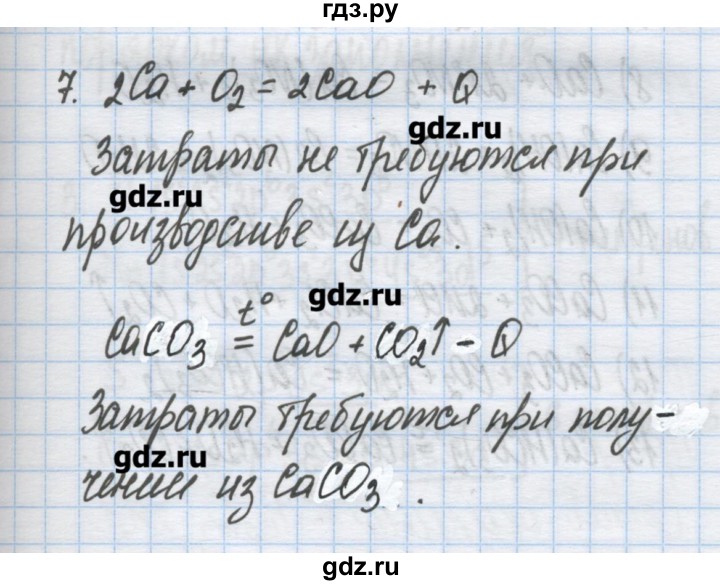 гдз.ру
7. 2Ca + O₂ = 2CaO + Q
gdz.ru
Затраты не требуются при
gdz.ru
производстве из Ca.
gdz.ru
CaCO₃ =^{t°} CaO + CO₂↑ - Q
Затраты требуются при полу-
gdz.ru
чении из CaCO₃.
gdz.ru